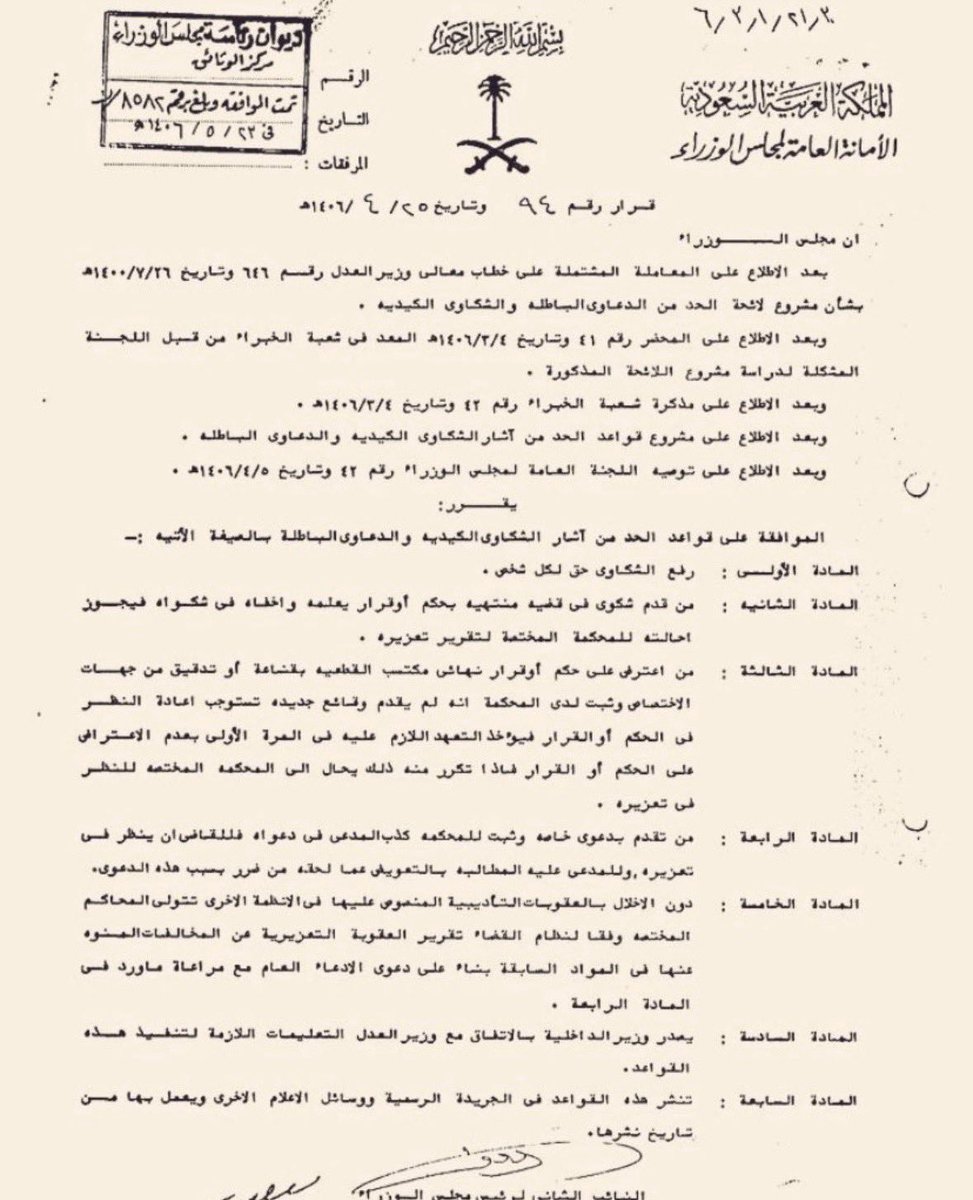 ٦/٢/١/٢١/٣
بسم الله الرحمن الرحيم
ديوان رئاسة مجلس الوزراء
مركز الوثائق
تمت الموافقه وبلغ برقم ٨٥٨٢/
في ٢٣ / ٥ / ١٤٠٦هـ
المملكة العربية السعودية
الأمانة العامة لمجلس الوزراء
الرقم
التاريخ
المرفقات :
قرار رقم ٩٤ وتاريخ ٢٥/ ٤ /١٤٠٦هـ
ان مجلس الـــــوزراء
بعد الاطلاع على المعاملة المشتملة على خطاب معالى وزير العدل رقم ٦٤٦ وتاريخ ١٤٠٠/٧/٢٦هـ
بشأن مشروع لائحة الحد من الدعاوى الباطله والشكاوى الكيديه .
وبعد الاطلاع على المحضر رقم ٤١ وتاريخ ١٤٠٦/٣/٤هـ المعد فى شعبة الخبراء من قبل اللجنة
المشكلة لدراسة مشروع اللائحة المذكورة .
وبعد الاطلاع على مذكرة شعبة الخبراء رقم ٤٢ وتاريخ ١٤٠٦/٣/٤هـ .
وبعد الاطلاع على مشروع قواعد الحد من آثار الشكاوى الكيديه والدعاوى الباطله .
وبعد الاطلاع على توصيه اللجنة العامة لمجلس الوزراء رقم ٤٢ وتاريخ ١٤٠٦/٤/٥هـ .
يقـــرر:
الموافقة على قواعد الحد من آثار الشكاوى الكيديه والدعاوى الباطلة بالصيغة الأتيه :ـ
المادة الأولــى : رفع الشكاوى حق لكل شخص .
المادة الثانيه : من قدم شكوى فى قضيه منتهيه بحكم أوقرار يعلمه واخفاه فى شكواه فيجوز
احالته للمحكمة المختصة لتقرير تعزيره .
المادة الثالثة : من اعترض على حكم أوقرار نهائى مكتسب القطعيه بقناعة أو تدقيق من جهات
الاختصاص وثبت لدى المحكمة انه لم يقدم وقائع جديده تستوجب اعادة النظر
فى الحكم أو القرار فيؤخذ التعهد اللازم عليه فى المرة الأولى بعدم الاعتراض
على الحكم أو القرار فاذا تكرر منه ذلك يحال الى المحكمه المختصه للنظر
فى تعزيره .
المادة الرابعة : من تقدم بدعوى خاصه وثبت للمحكمه كذب المدعى فى دعواه فللقاضى ان ينظر فى
تعزيره ,وللمدعى عليه المطالبه بالتعويض عما لحقه من ضرر بسبب هذه الدعوى.
المادة الخامسة : دون الاخلال بالعقوبات التأديبية المنصوص عليها فى الانظمة الاخرى تتولى المحاكم
المختصه وفقا لنظام القضاء تقرير العقوبة التعزيرية عن المخالفات المنوه
عنها فى المواد السابقة بناء على دعوى الادعاء العام مع مراعاة ماورد فى
المادة الرابعة .
المادة السادسة : يصدر وزير الداخلية بالاتفاق مع وزير العدل التعليمات اللازمة لتنفيذ هذه
القواعد.
المادة السابعة : تنشر هذه القواعد فى الجريدة الرسمية ووسائل الاعلام الاخرى ويعمل بها من
تاريخ نشرها.
النائب الثانى لرئيس مجلس الوزراء